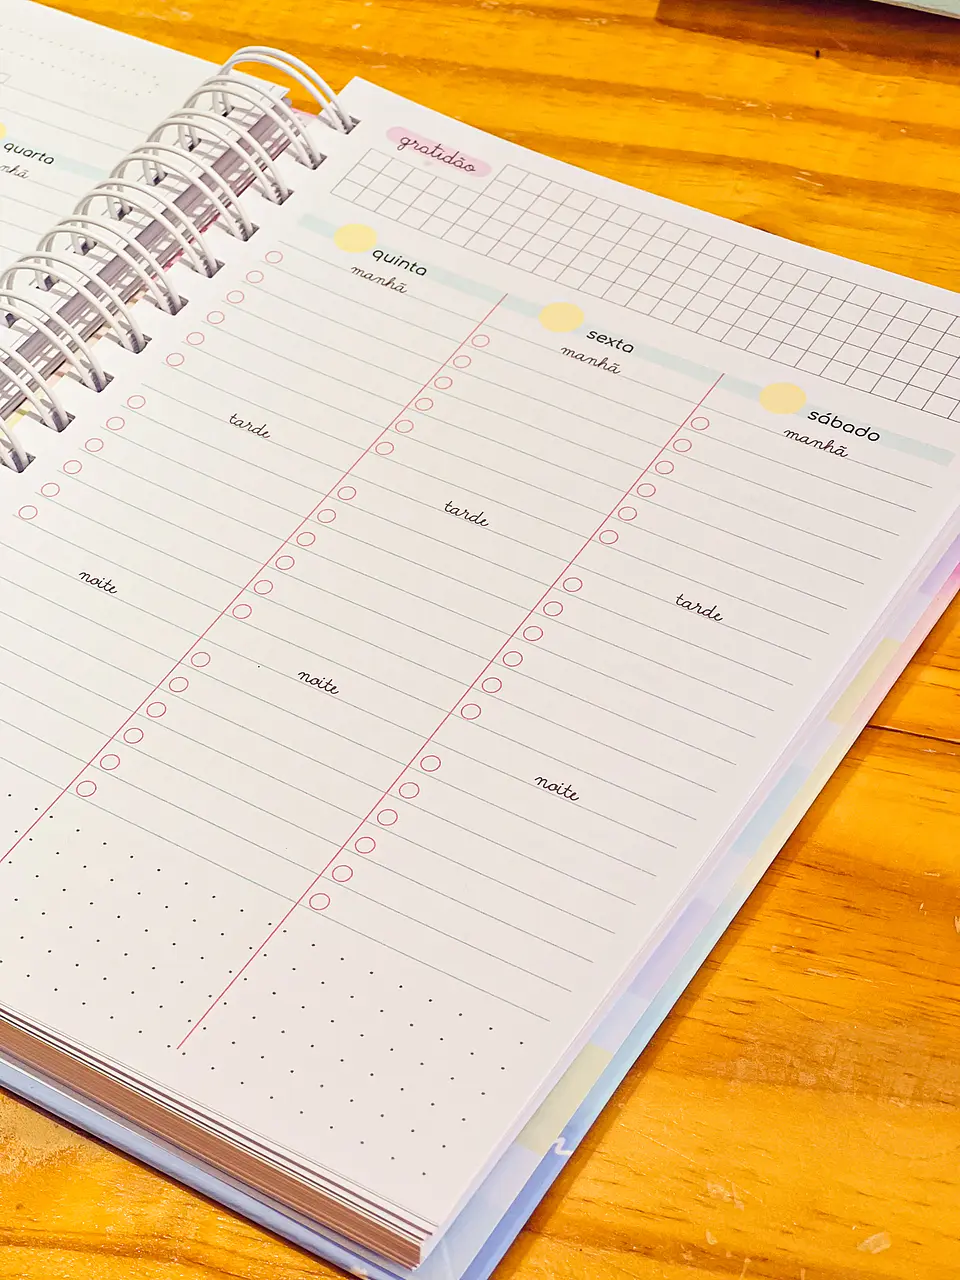 quarta
manhã
gratidão
quinta
manhã
tarde
noite
sexta
manhã
tarde
noite
sábado
manhã
tarde
noite